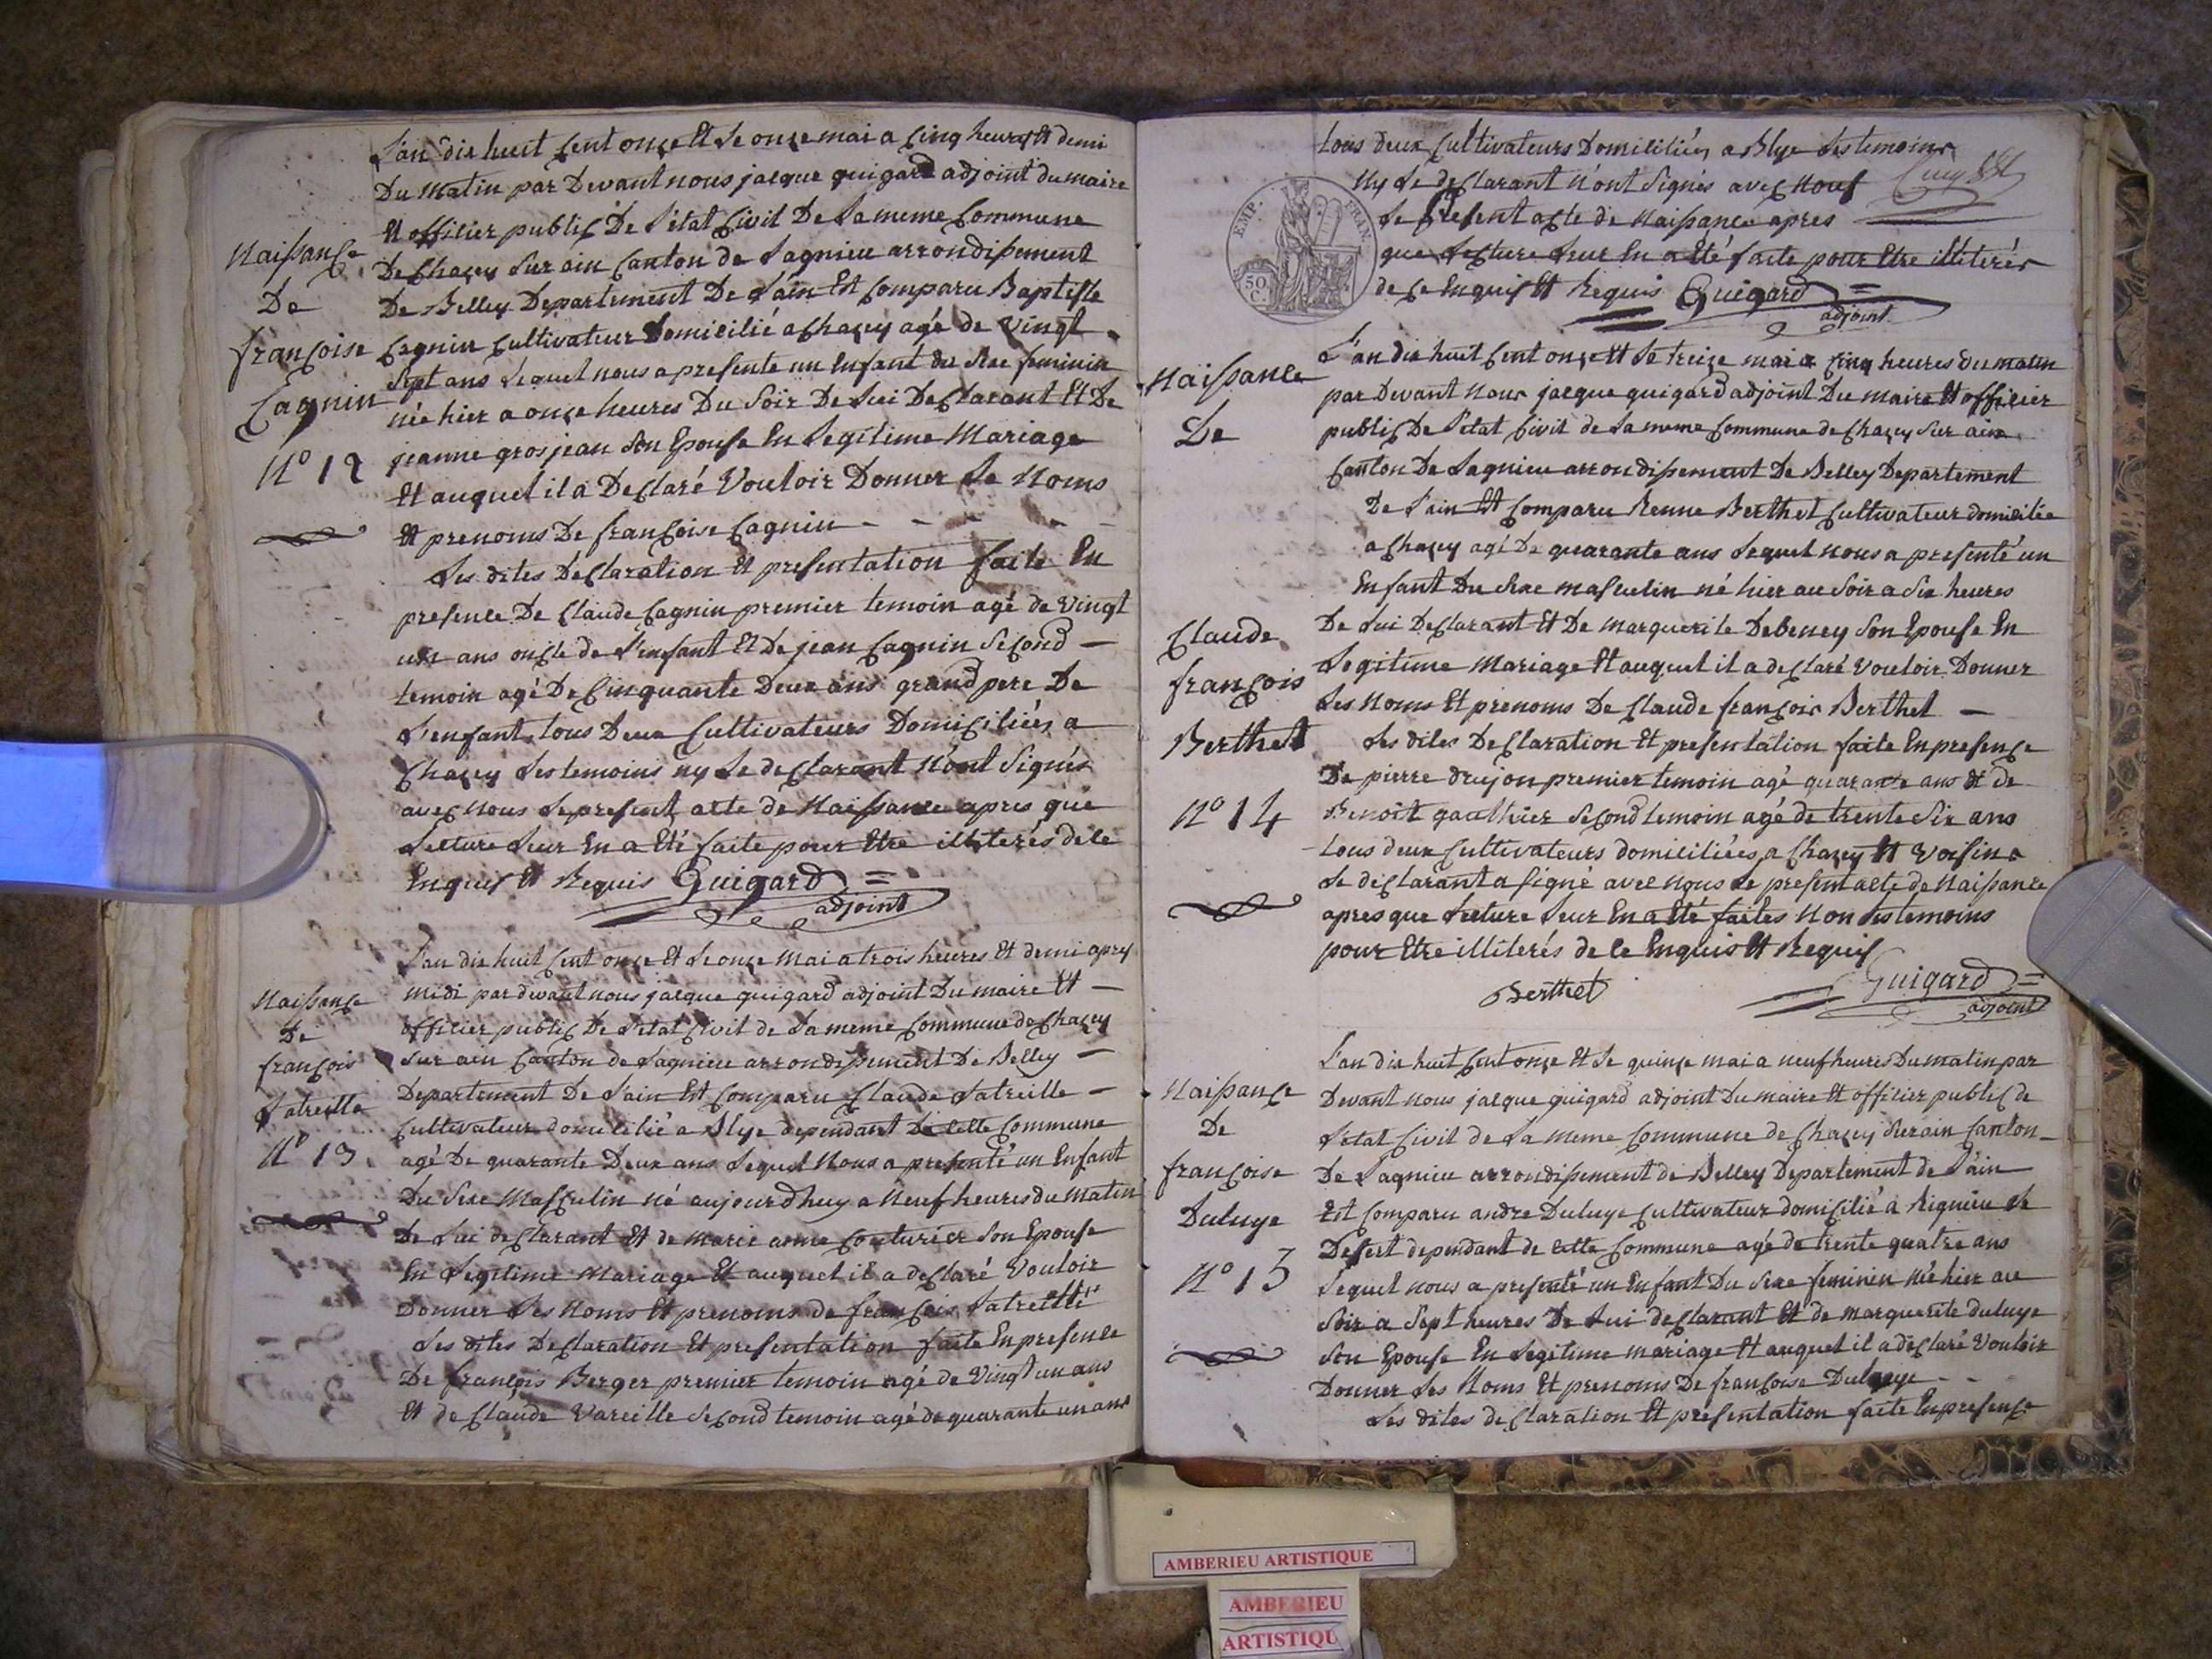 L'an dix huit cent onze et le onze mai a cinq heures et demi
Du matin par Devant nous jacque guigard adjoint du maire
Et officier public De l'état Civil De la meme Commune
De Chazey Sur ain Canton de Lagnieu arrondissement
De Belley Departement De l'ain Est Comparu Baptiste
Cagnin Cultivateur Domicilié a Chazey agé de vingt
Sept ans lequel nous a presenté un Enfant du Sexe feminin
née hier a onze heures Du Soir De lui Declarant Et De
jeanne grosjean Son Epouse En legitime Mariage
Et auquel il a Declaré Vouloir Donner Le Noms
Et prenoms De françoise Cagnin - - - -
Les dites Declaration Et presentation faite En
presence De Claude Cagnin premier temoin agé de Vingt
un ans oncle de L'enfant Et De jean Cagnin Second -
temoin agé De Cinquante Deux ans grand pere De
L'enfant tous Deux Cultivateurs Domiciliés a
Chazey Les temoins ny Le declarant N'ont Signés
avec nous Le present acte de Naissance apres que
Lecture Leur En a Eté faite pour Etre illiterés de ce
Enquis Et Requis Guigard =
adjoint
Naissance
De
françoise
Cagnin
N° 12
L'an dix huit Cent onze Et Le onze Mai a trois heures Et demi apres
midi par devant nous jacque guigard adjoint Du maire Et -
officier public De l'etat Civil de La meme Commune de Chazey
Sur ain Canton de Lagnieu arrondissement De Belley -
Departement De L'ain Est Comparu Claude Latreille -
Cultivateur domicilié a Blye dependant De Cette Commune
agé De quarante Deux ans Lequel Nous a presenté un Enfant
Du Sexe Masculin né aujourdhuy a Neuf heures du Matin
De Lui declarant Et de marie anne Couturier Son Epouse
En Legitime Mariage Et auquel il a declaré Vouloir
Donner Les Noms Et prenoms de françois Latreille
Les dites Declaration Et presentation faite En presence
De françois Berger premier temoin agé de Vingt un ans
Et de Claude Vareille Second temoin agé de quarante un ans
Naissance
De
françois
Latreille
N° 13
tous deux Cultivateurs Domiciliés a Blye Les temoins
Ny Le declarant N'ont Signés avec Nous
Le present acte de Naissance apres
que Lecture Leur En a Eté faite pour Etre illiterés
de Ce Enquis Et Requis Guigard =
adjoint
EMP. FRAN.
50 C.
L'an dix huit Cent onze Et Le treize mai a cinq heures du matin
par Devant Nous jacque guigard adjoint Du maire Et officier
public De l'etat Civil de La meme Commune de Chazey Sur ain
Canton De Lagnieu arrondissement De Belley Departement
De L'ain Est Comparu Renne Berthet Cultivateur domicilée
a Chazey agé De quarante ans Lequel nous a presenté un
Enfant Du Sexe masculin né hier au Soir a Six heures
De Lui Declarant Et De Marguerite Debeney Son Epouse En
Legitime Mariage Et auquel il a declaré Vouloir Donner
Les Noms Et prenoms De Claude françois Berthet -
Les dites Declaration Et presentation faite En presence
De pierre drujon premier temoin agé quarante ans Et de
Benoit gauthier Second temoin agé de trente Six ans
tous deux Cultivateurs domiciliées a Chazey Et Voisins
Le declarant a signé avec nous Le present acte de Naissance
apres que Lecture Leur En a Eté faites Non Les temoins
pour Etre illiterés de Ce Enquis Et Requis
Berthet Guigard =
adjoint
Naissance
De
Claude
françois
Berthet
N° 14
L'an dix huit Cent onze Et Le quinze mai a neuf heures Du matin par
Devant Nous jacque guigard adjoint Du maire Et officier public de
L'etat Civil de La meme Commune de Chazey Sur ain Canton
De Lagnieu arrondissement de Belley Departement de L'ain
Est Comparu andre Duluye Cultivateur domicilié a Rignieu le
Desert dependant de Cette Commune agé de trente quatre ans
Lequel nous a presenté un Enfant Du Sexe feminin née hier au
Soir a Sept heures De Lui declarant Et de marguerite duluye
Son Epouse En Legitime mariage Et auquel il a declaré Vouloir
Donner Les Noms Et prenoms De françoise Duluye - -
Les dites declaration Et presentation faite En presence
Naissance
De
françoise
Duluye
N° 15
AMBERIEU ARTISTIQUE
AMBERIEU
ARTISTIQU